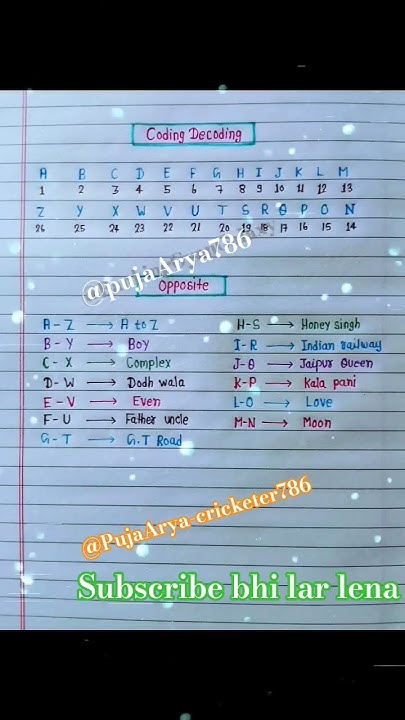 Coding Decoding
A B C D E F G H I J K L M
1 2 3 4 5 6 7 8 9 10 11 12 13
Z Y X W V U T S R Q P O N
26 25 24 23 22 21 20 19 18 17 16 15 14
@pujaArya786
Opposite
A-Z → A to Z
B-Y → Boy
C-X → Complex
D-W → Dodh wala
E-V → Even
F-U → Father uncle
G-T → G.T Road
H-S → Honey singh
I-R → Indian railway
J-Q → Jaipur Queen
K-P → Kala pani
L-O → Love
M-N → Moon
@PujaArya-cricketer786
Subscribe bhi lar lena